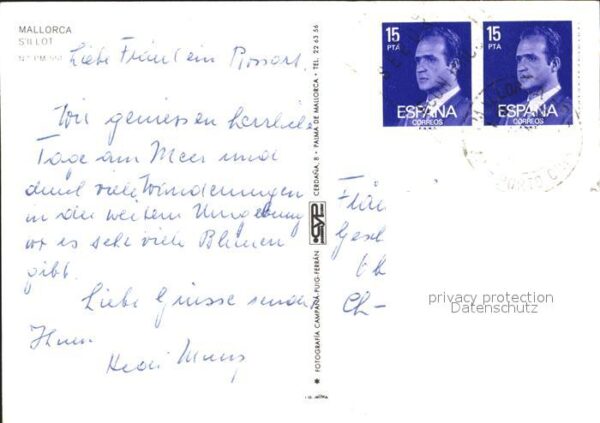 MALLORCA
S'ILLOT
Liebe Fräulein Rossart.
Wir geniessen herrliche
Tage am Meer und
durch viele Wanderungen
in der weitern Umgebung
wo es sehr viele Blumen
gibt.
Liebe Grüsse sendet
Ihnen
Hedi
FOTOGRAFÍA CAMPAÑÁ-PUIG-FERRÁN
CERDAÑA, 8 - PALMA DE MALLORCA - TEL. 22 63 56
15
PTA
ESPAÑA
CORREOS
15
PTA
ESPAÑA
CORREOS
Fräu
Gesch
Ch-
privacy protection
Datenschutz